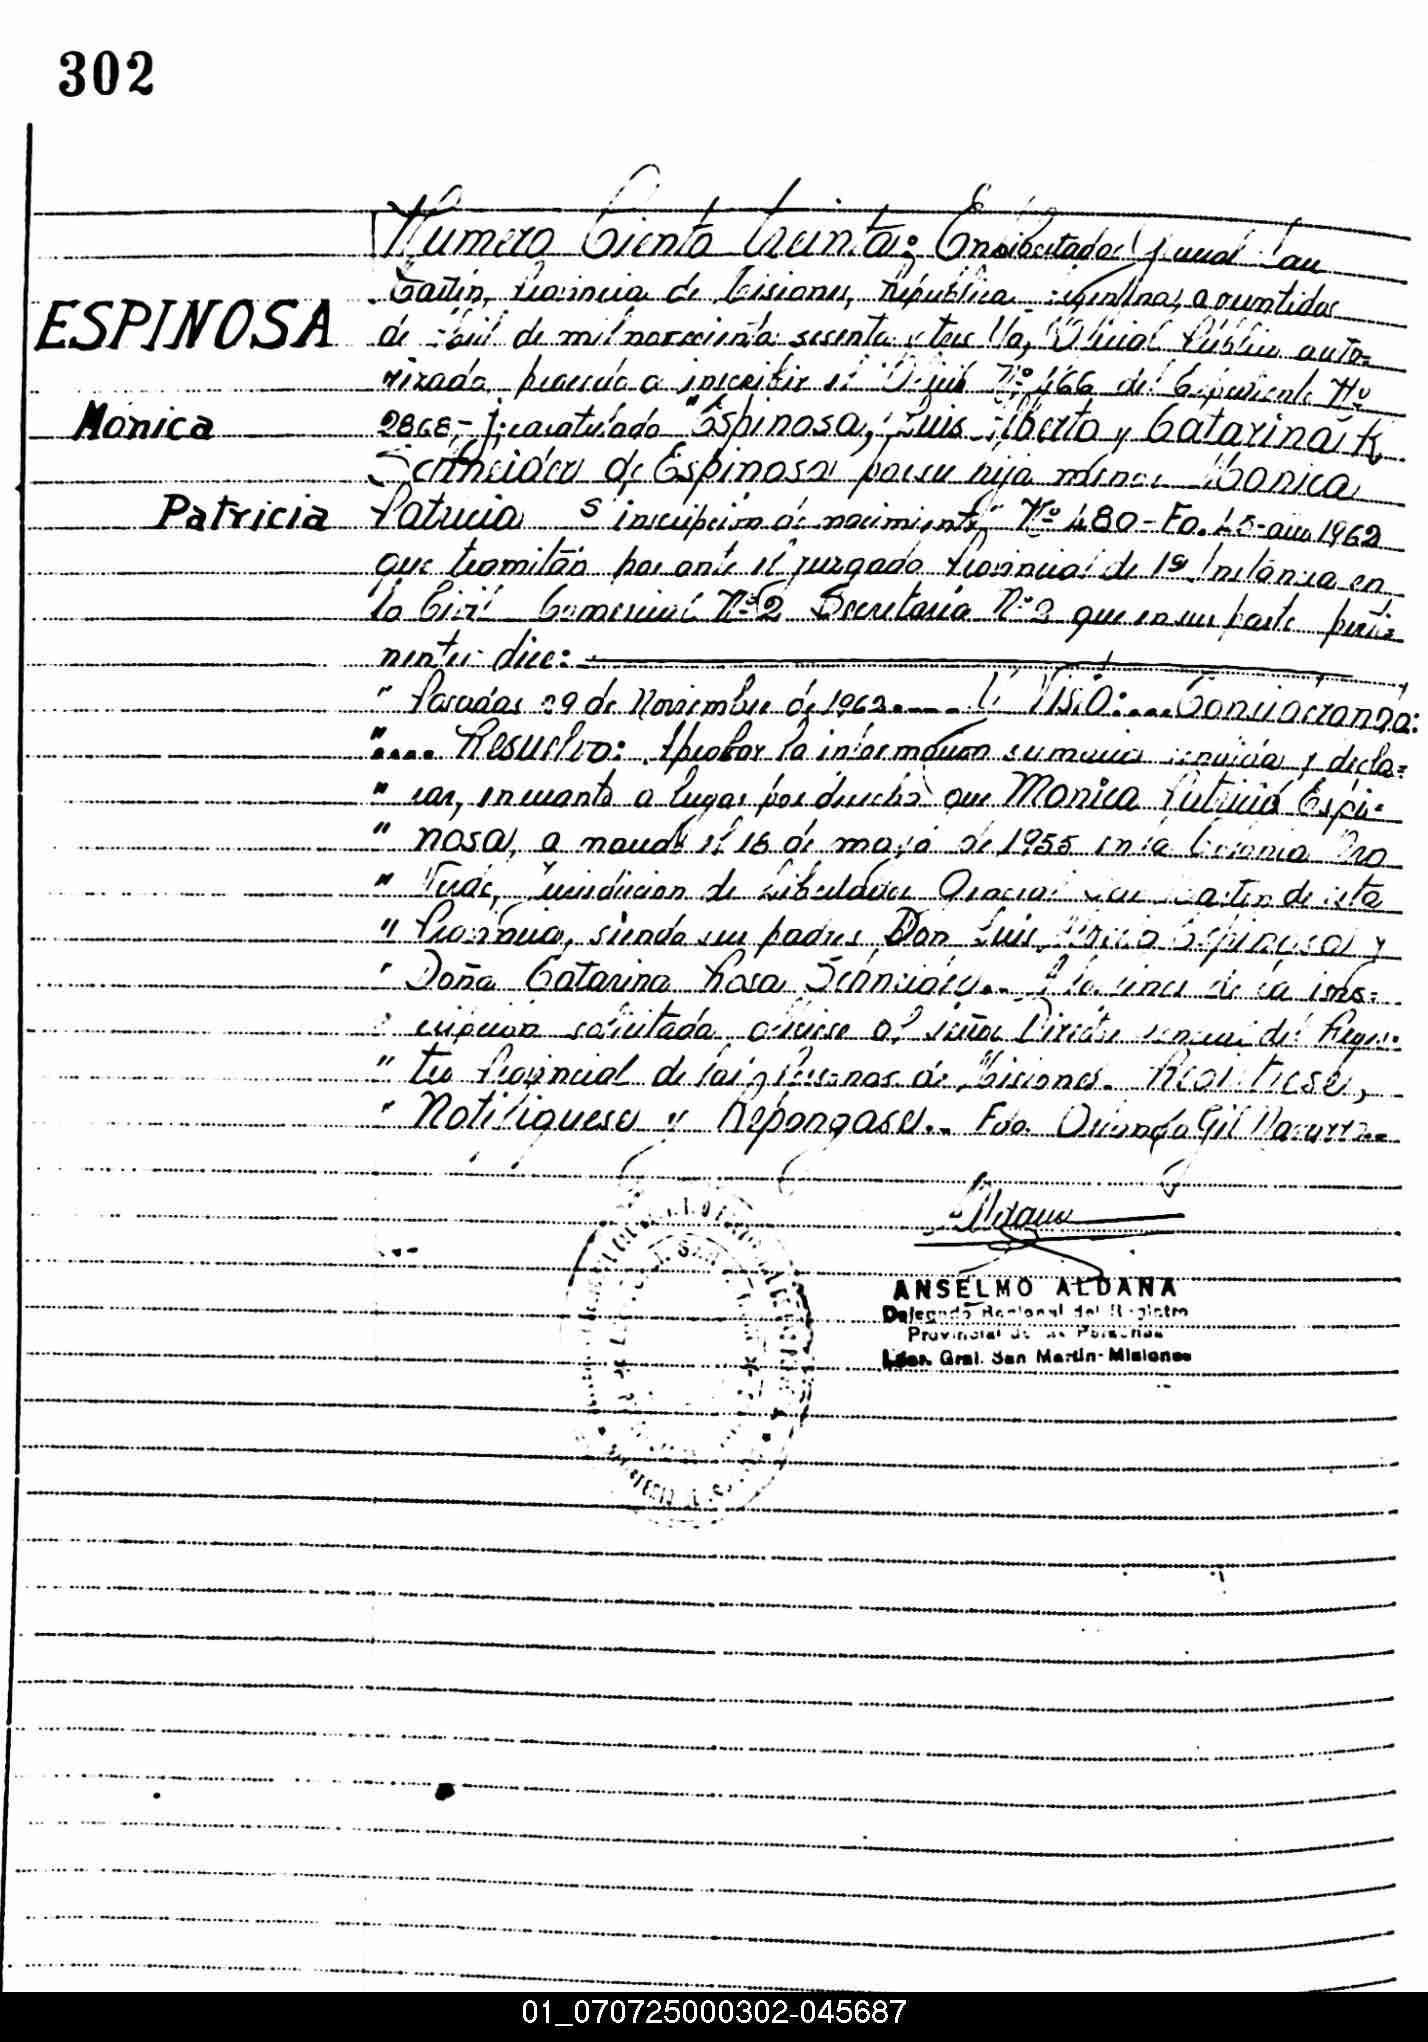 302
Numero Ciento treinta: En Libertador General San
Martín, Provincia de Misiones, República Argentina, a veintidos
ESPINOSA
de Abril de mil novecientos sesenta y tres Yo, Oficial Público auto-
rizado procedo a inscribir el Oficio Nº 466 del Expediente Nº
Mónica
2868-J; caratulado "Espinosa, Luis Alberto y Catarina R
Schneider de Espinosa por su hija menor Monica
Patricia
Patricia S inscripcion de nacimiento" Nº 480-Fo. 45-año 1962
que tramitan por ante el juzgado Provincial de 1ª Instancia en
lo Civil Comercial Nº 2 Secretaria Nº 2 que en su parte perti-
nente: dice:
" Posadas 29 de Noviembre de 1962.... Y Visto:... Considerando:
".... Resuelvo: Aprobar la informacion sumaria y decla-
" rar, en cuanto a lugar por derecho que Monica Patricia Espi-
" nosa, a nacido el 15 de mayo de 1955 en la Colonia Oro
" Verde, Jurisdiccion de Libertador General San Martin de esta
" Provincia, siendo sus padres Don Luis Alberto Espinosa y
" Doña Catarina Rosa Schneider.. A los fines de la ins-
" cripcion solicitada ofíciese al señor Director General del Regis-
" tro Provincial de las Personas de Misiones. Registrese,
" Notifiquese y Repongase.. Fdo. Orlando Gil Navarro.-
Aldana
ANSELMO ALDANA
Delegado Regional del Registro
Provincial de las Personas
Ldor. Gral. San Martín-Misiones
01_070725000302-045687